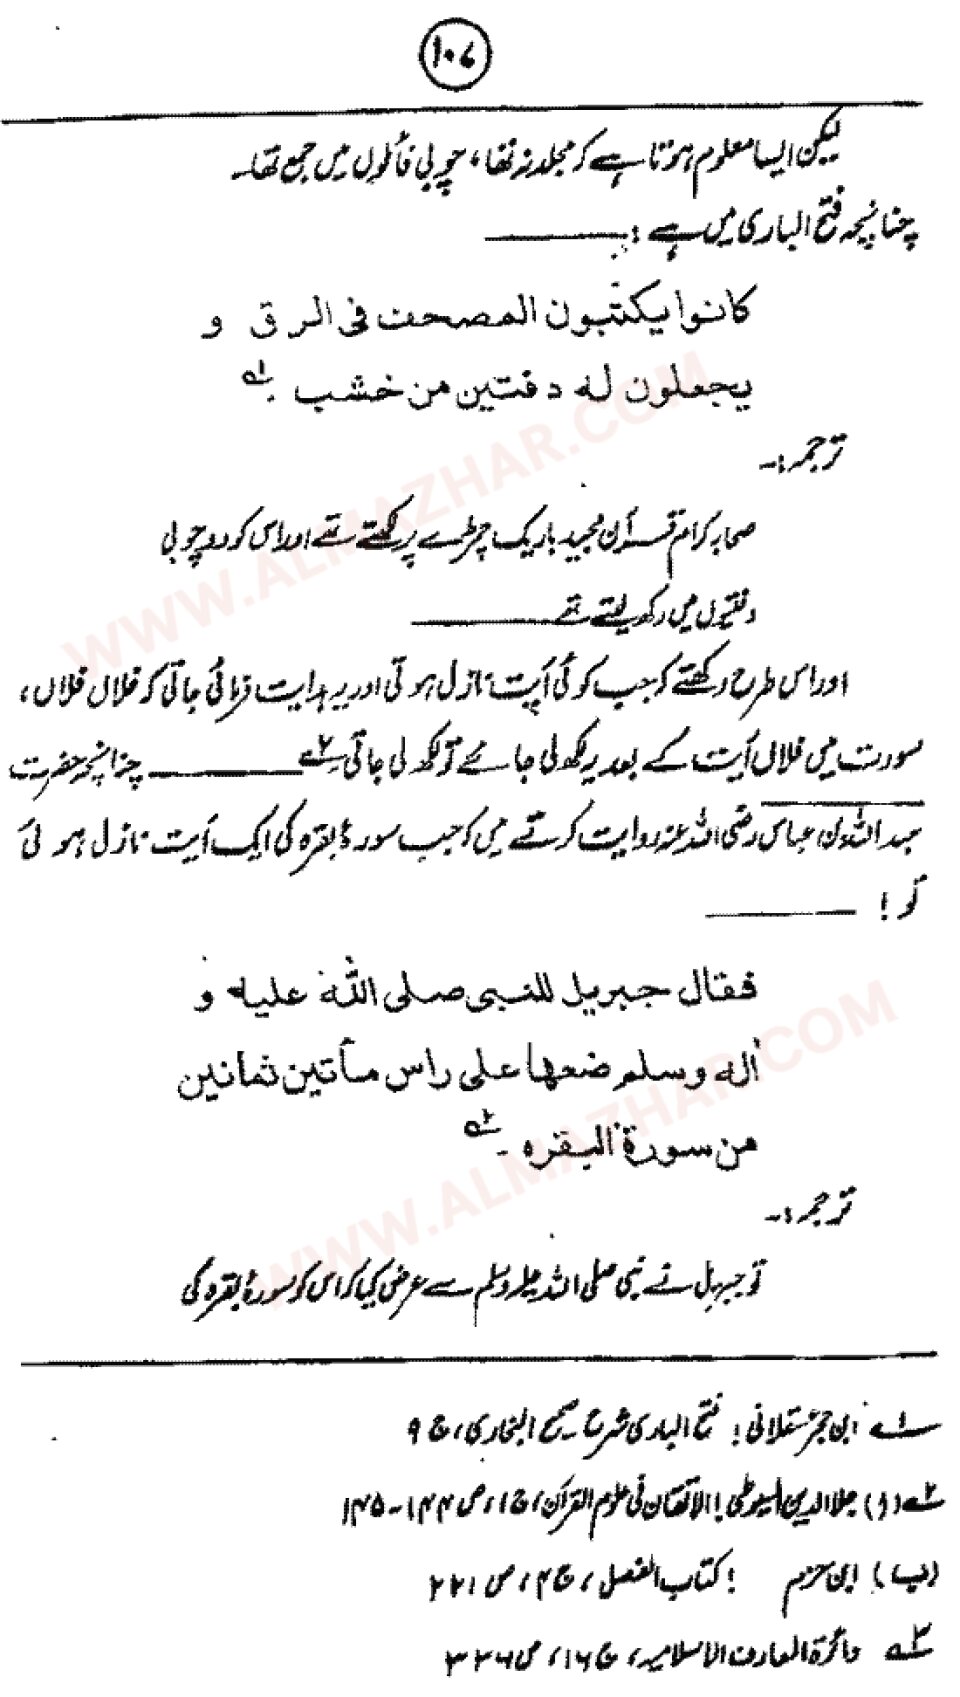 ۱۰۷
لیکن ایسا معلوم ہوتا ہے کہ مجلد نہ تھا، چوبی فائلوں میں جمع تھا۔
چنانچہ فتح الباری میں ہے :
كانوا يكتبون المصحف فى الرق و
يجعلون له دفتين من خشب ۔ ۱؎
ترجمہ :۔
صحابہ کرام قرآن مجید باریک چمڑے پر لکھتے تھے اور اس کو دو چوبی
دفتیوں میں رکھ لیتے تھے
اور اس طرح رکھتے کہ جب کوئی آیت نازل ہوتی اور یہ ہدایت فرمائی جاتی کہ فلاں فلاں،
سورت میں فلاں آیت کے بعد یہ لکھ لی جائے تو لکھ لی جاتی ۲؎ چنانچہ حضرت
عبد اللہ بن عباس رضی اللہ عنہ روایت کرتے ہیں کہ جب سورۂ بقرہ کی ایک آیت نازل ہوئی
تو !
فقال جبريل للنبى صلى الله عليه و
اله وسلم ضعها على راس مأتين ثمانين
من سورة البقره ۔ ۳؎
ترجمہ :۔
تو جبریل نے نبی صلی اللہ علیہ وسلم سے عرض کیا کہ اس کو سورۂ بقرہ کی
۱؎ ابن حجر عسقلانی ! فتح الباری شرح صحیح البخاری، ج ۹
۲؎ (ا) جلال الدین السیوطی ! الاتقان فی علوم القرآن، ج ۱، ص ۱۴۴-۱۴۵
(ب) ابن حزم ! کتاب الفصل، ج ۴، ص ۲۲۱
۳؎ دائرۃ المعارف الاسلامیہ، ج ۱۶، ص ۳۳۶
WWW.ALMAZHAR.COM
WWW.ALMAZHAR.COM